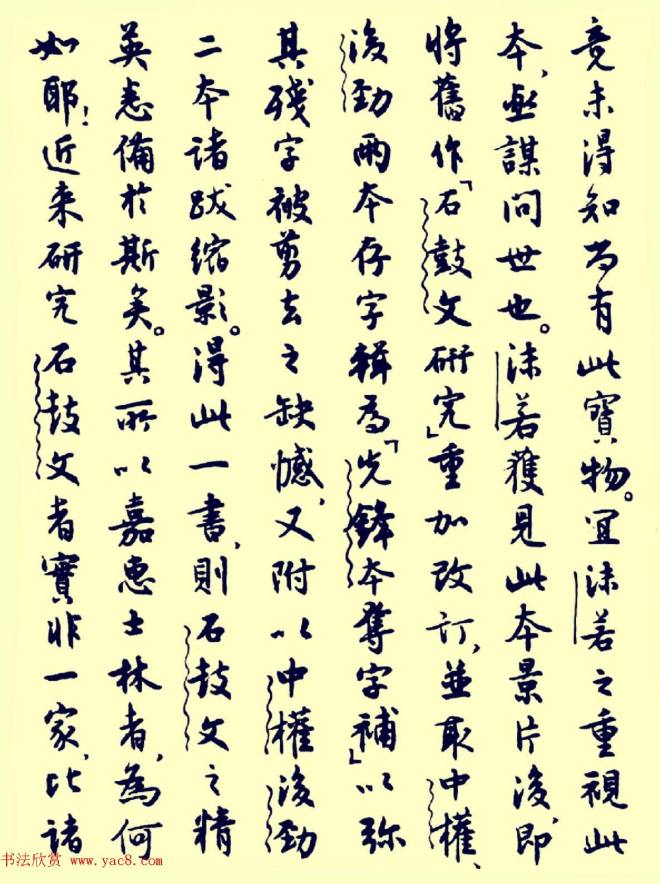 竟未得知尚有此寶物。宜沫若之重視此
本，亟謀問世也。沫若獲見此本景片後，即
將舊作「石鼓文研究」重加改訂，並取中權、
後勁兩本存字輯為「先鋒本奪字補」以弥
其殘字被剪去之缺憾，又附以中權後勁
二本諸跋缩影。得此一書，則石鼓文之精
英悉備於斯矣。其所以嘉惠士林者，為何
如耶！近来研究石鼓文者實非一家，比諸
书法欣赏 www.yac8.com